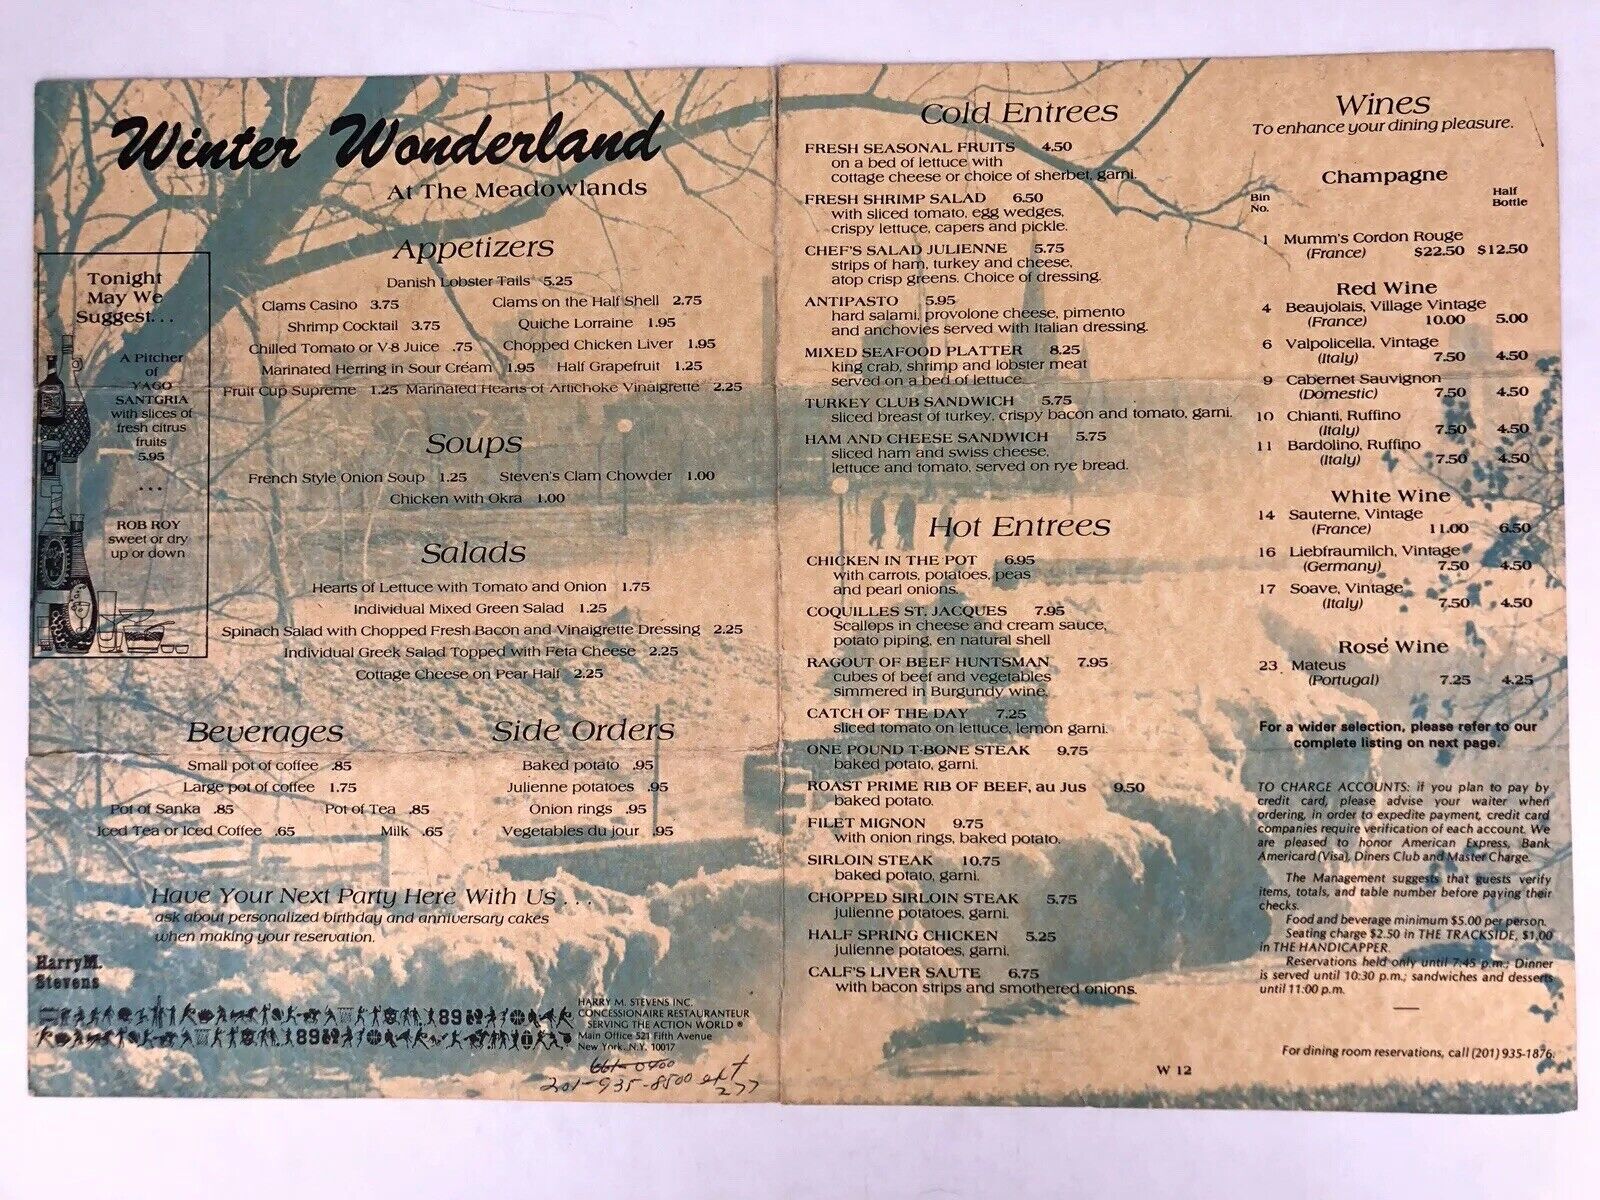 Winter Wonderland
At The Meadowlands
Tonight
May We
Suggest. . .
A Pitcher
of
YAGO
SANTGRIA
with slices of
fresh citrus
fruits
5.95
. . .
ROB ROY
sweet or dry
up or down
Appetizers
Danish Lobster Tails 5.25
Clams Casino 3.75 Clams on the Half Shell 2.75
Shrimp Cocktail 3.75 Quiche Lorraine 1.95
Chilled Tomato or V-8 Juice .75 Chopped Chicken Liver 1.95
Marinated Herring in Sour Cream 1.95 Half Grapefruit 1.25
Fruit Cup Supreme 1.25 Marinated Hearts of Artichoke Vinaigrette 2.25
Soups
French Style Onion Soup 1.25 Steven's Clam Chowder 1.00
Chicken with Okra 1.00
Salads
Hearts of Lettuce with Tomato and Onion 1.75
Individual Mixed Green Salad 1.25
Spinach Salad with Chopped Fresh Bacon and Vinaigrette Dressing 2.25
Individual Greek Salad Topped with Feta Cheese 2.25
Cottage Cheese on Pear Half 2.25
Beverages
Small pot of coffee .85
Large pot of coffee 1.75
Pot of Sanka .85 Pot of Tea .85
Iced Tea or Iced Coffee .65 Milk .65
Side Orders
Baked potato .95
Julienne potatoes .95
Onion rings .95
Vegetables du jour .95
Have Your Next Party Here With Us . . .
ask about personalized birthday and anniversary cakes
when making your reservation.
Harry M.
Stevens
89
89
HARRY M. STEVENS INC.
CONCESSIONAIRE RESTAURANTEUR
SERVING THE ACTION WORLD ®
Main Office 521 Fifth Avenue
New York, N.Y. 10017
201-935-8500 ext
277
Cold Entrees
FRESH SEASONAL FRUITS 4.50
on a bed of lettuce with
cottage cheese or choice of sherbet, garni.
FRESH SHRIMP SALAD 6.50
with sliced tomato, egg wedges,
crispy lettuce, capers and pickle.
CHEF'S SALAD JULIENNE 5.75
strips of ham, turkey and cheese,
atop crisp greens. Choice of dressing.
ANTIPASTO 5.95
hard salami, provolone cheese, pimento
and anchovies served with Italian dressing.
MIXED SEAFOOD PLATTER 8.25
king crab, shrimp and lobster meat
served on a bed of lettuce.
TURKEY CLUB SANDWICH 5.75
sliced breast of turkey, crispy bacon and tomato, garni.
HAM AND CHEESE SANDWICH 5.75
sliced ham and swiss cheese,
lettuce and tomato, served on rye bread.
Hot Entrees
CHICKEN IN THE POT 6.95
with carrots, potatoes, peas
and pearl onions.
COQUILLES ST. JACQUES 7.95
Scallops in cheese and cream sauce,
potato piping, en natural shell
RAGOUT OF BEEF HUNTSMAN 7.95
cubes of beef and vegetables
simmered in Burgundy wine.
CATCH OF THE DAY 7.25
sliced tomato on lettuce, lemon garni.
ONE POUND T-BONE STEAK 9.75
baked potato, garni.
ROAST PRIME RIB OF BEEF, au Jus 9.50
baked potato.
FILET MIGNON 9.75
with onion rings, baked potato.
SIRLOIN STEAK 10.75
baked potato, garni.
CHOPPED SIRLOIN STEAK 5.75
julienne potatoes, garni.
HALF SPRING CHICKEN 5.25
julienne potatoes, garni.
CALF'S LIVER SAUTE 6.75
with bacon strips and smothered onions.
W 12
Wines
To enhance your dining pleasure.
Champagne
Bin
No.
Half
Bottle
1 Mumm's Cordon Rouge
(France) $22.50 $12.50
Red Wine
4 Beaujolais, Village Vintage
(France) 10.00 5.00
6 Valpolicella, Vintage
(Italy) 7.50 4.50
9 Cabernet Sauvignon
(Domestic) 7.50 4.50
10 Chianti, Ruffino
(Italy) 7.50 4.50
11 Bardolino, Ruffino
(Italy) 7.50 4.50
White Wine
14 Sauterne, Vintage
(France) 11.00 6.50
16 Liebfraumilch, Vintage
(Germany) 7.50 4.50
17 Soave, Vintage
(Italy) 7.50 4.50
Rosé Wine
23 Mateus
(Portugal) 7.25 4.25
For a wider selection, please refer to our
complete listing on next page.
TO CHARGE ACCOUNTS: if you plan to pay by
credit card, please advise your waiter when
ordering, in order to expedite payment, credit card
companies require verification of each account. We
are pleased to honor American Express, Bank
Americard (Visa), Diners Club and Master Charge.
The Management suggests that guests verify
items, totals, and table number before paying their
checks.
Food and beverage minimum $5.00 per person.
Seating charge $2.50 in THE TRACKSIDE, $1.00
in THE HANDICAPPER.
Reservations held only until 7:45 p.m.; Dinner
is served until 10:30 p.m.; sandwiches and desserts
until 11:00 p.m.
For dining room reservations, call (201) 935-1876.